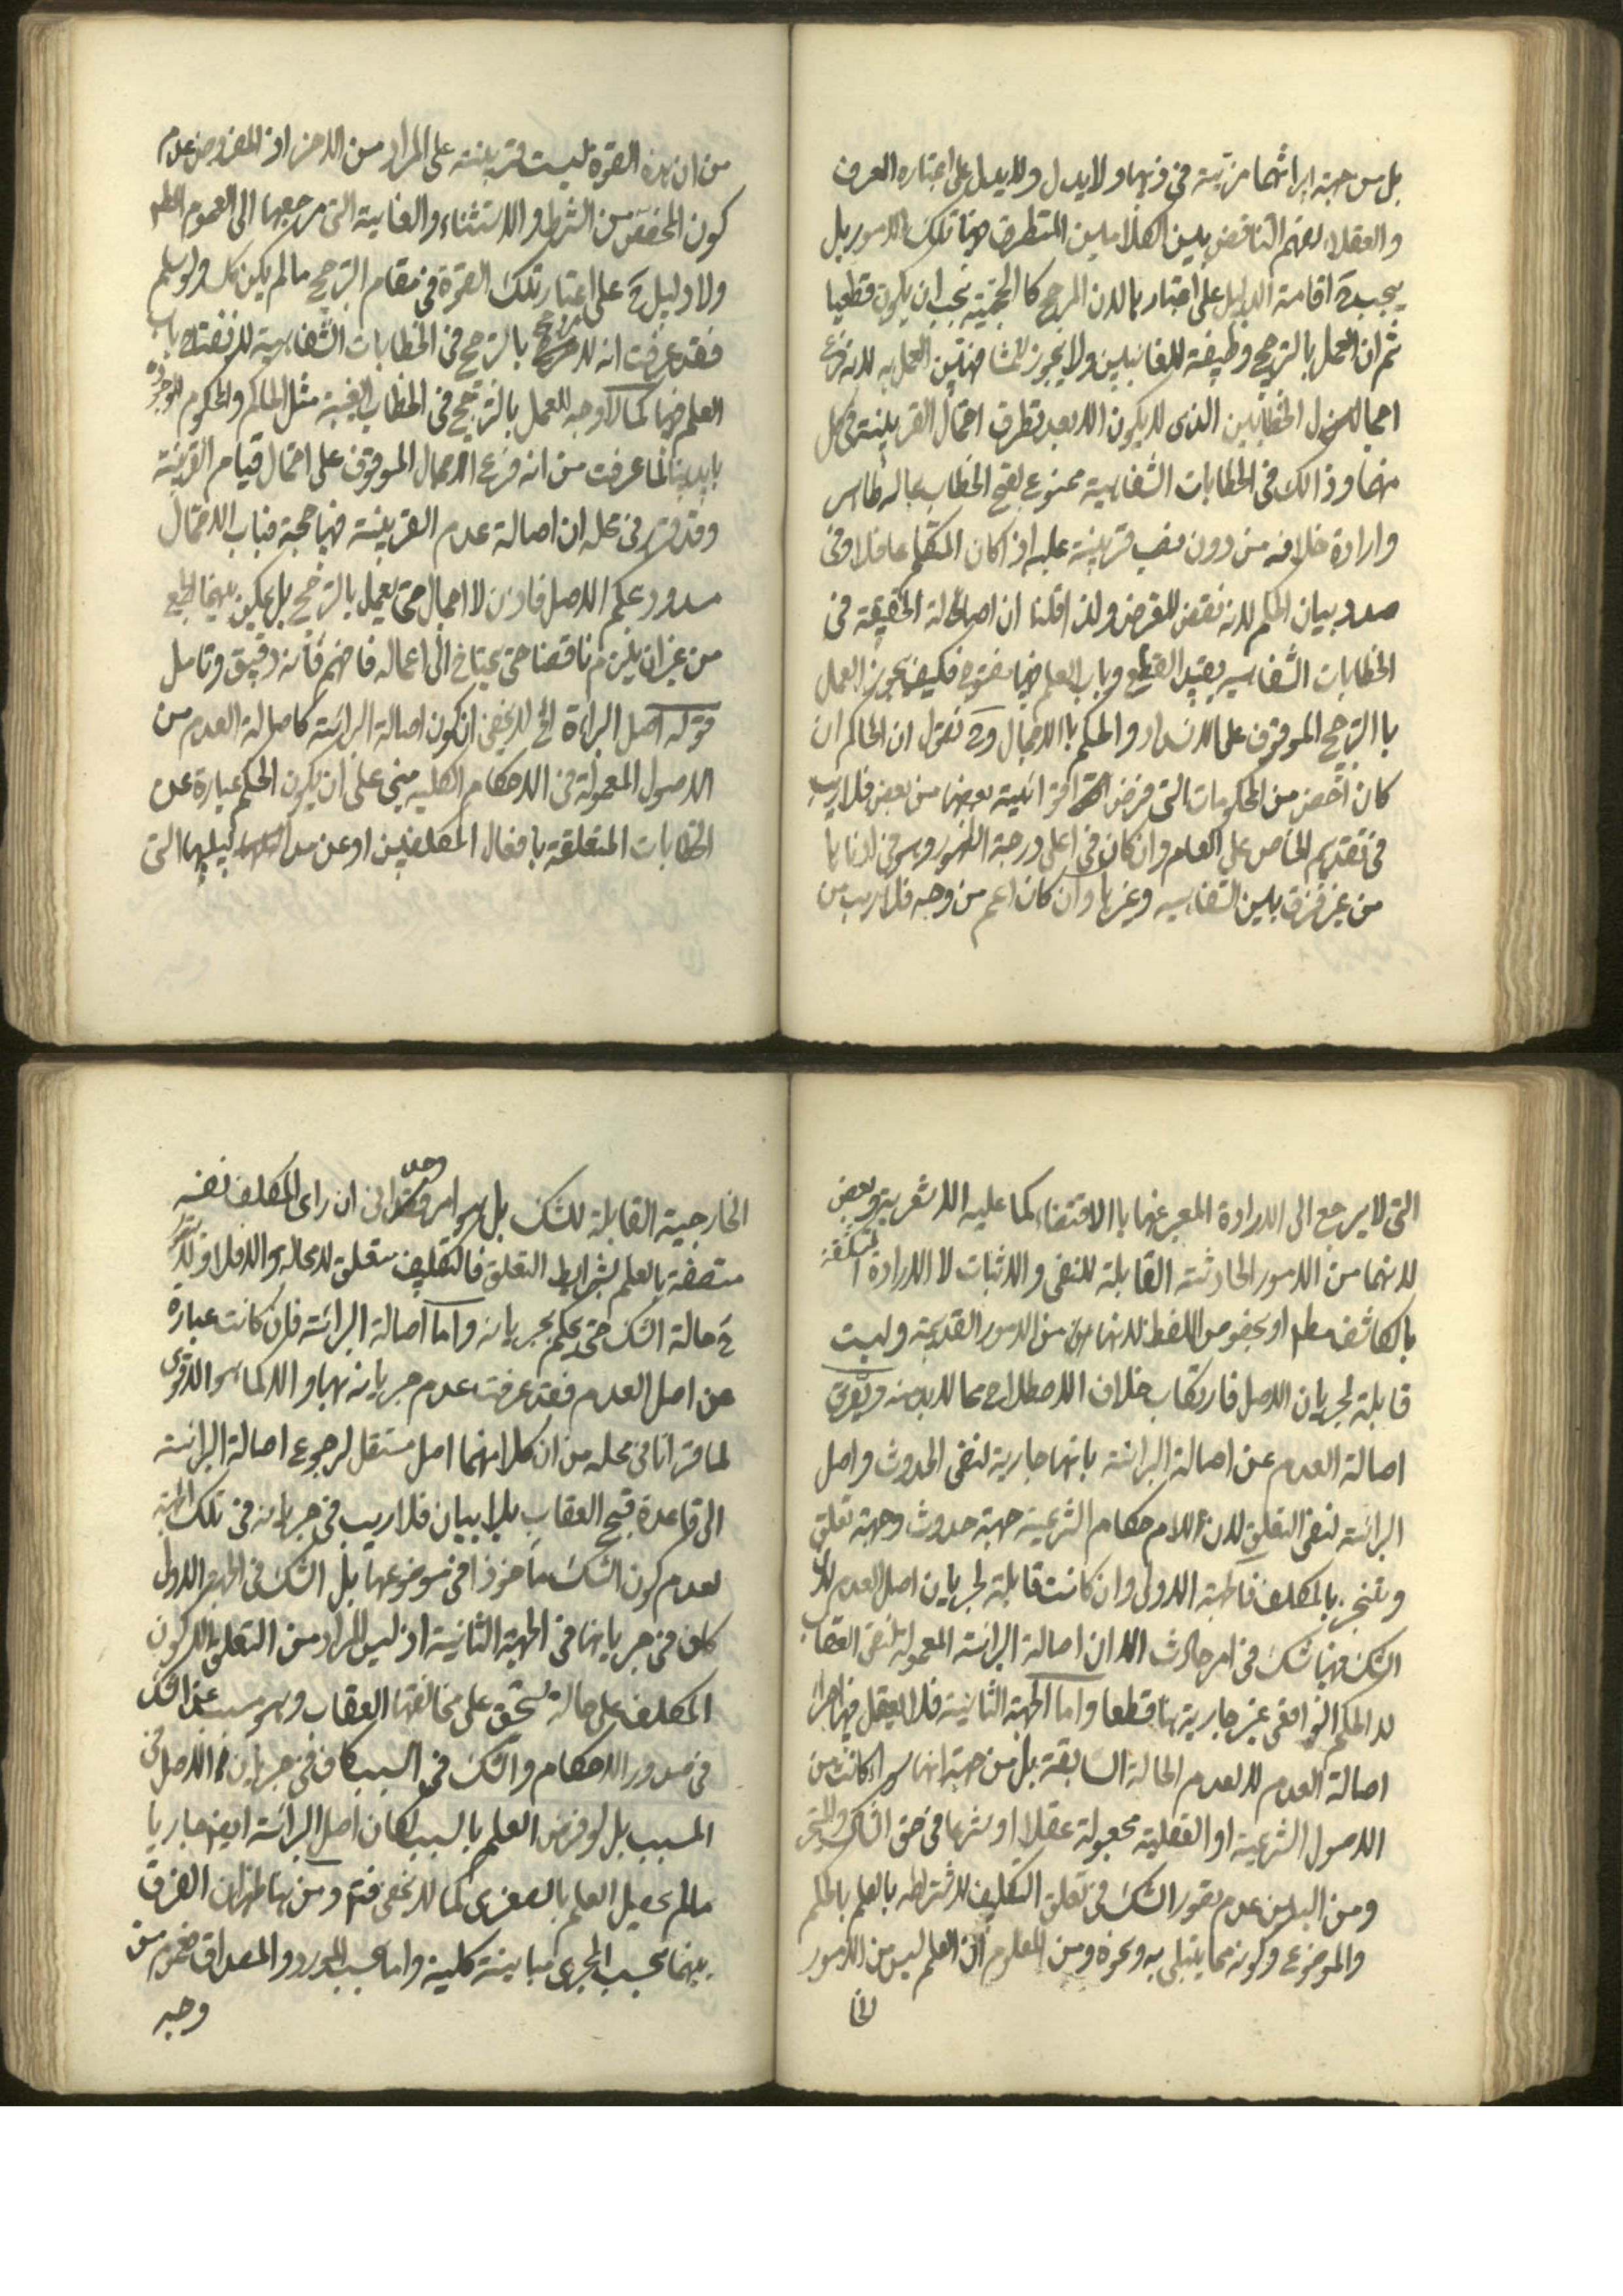 بل من جهة ايراثها مزية في ذيها ولا يدل ولا يدل على اعتباره العرف
والعقلاء لفهم التناقض بين الكلامين المتطرف فيهما تلك الامور بل
يجب ح اقامة الدليل على اعتبارها لان المرجح كالحجية يجب ان يكون قطعيا
ثم ان العمل بالترجيح وظيفة للغائبين ولا يجوز للمشافهين العمل به لانه فرع
اجمال الخطابين الذي لا يكون الا بعد تطرق احتمال القرينة في كل
منهما وذالك في الخطابات الشفاهية ممنوع لقبح الخطاب بماله ظاهر
وارادة خلافه من دون نصب قرينة عليه اذا كان المتكلم عاقلا وفي
صدد بيان الحكم لانه نقض للغرض ولذا قلنا ان اصالة الحقيقة في
الخطابات الشفاهيه يفيد القطع وباب العلم فيها مفتوح فكيف يجوز العمل
باالترجيح الموقوف على الانسداد والحكم باالاجمال وح نقول ان الحاكم ان
كان اخص من المحكومات التي فرض اقوائية بعضها من بعض فلا ريب
في تقديم الخاص على العام وان كان في اعلى درجة الظهور وهو في ادناها
من غير فرق بين الشفاهيه وغيرها وان كان اعم من وجه فلا ريب من
من ان هذه القوة ليست قرينة على المراد من الاخر اذ المفروض عدم
كون المخصص من الشرط والاستثناء والغاية التي مرجعها الى العموم المطلق
ولا دليل ح على اعتبار تلك القوة في مقام الترجيح مالم يكن كك ولو سلم
فقد عرفت انه لا بالترجيح في الخطابات الشفاهية لانفتاح باب
العلم فيها كما لا وجه للعمل بالترجيح في الخطاب الغيبة مثل الحاكم والمحكوم الموجودة
بايدينا لما عرفت من انه فرع الاجمال الموقوف على احتمال قيام القرينة
وقد قرر في محله ان اصالة عدم القرينة فيها حجة فباب الاحتمال
مسدود بحكم الاصل فاذن لا اجمال حتى يعمل بالترجيح بل يمكن بينهما الجمع
من غير ان يلزم تناقضا حتى يحتاج الى اعماله فافهم فانه دقيق وتامل
قوله اصل البرائة الخ لا يخفى ان كون اصالة البرائة كاصالة العدم من
الاصول المعمولة في الاحكام الكليه مبني على ان يكون الحكم عبارة عن
الخطابات المتعلقة بافعال المكلفين او عن التي
التي لا يرجع الى الارادة المعبر عنها باالاقتضاء كما عليه الاشعرية وبعض
لانهما من الامور الحادثة القابلة للنفي والاثبات لا الارادة المنكشفة
بالكاشف مطم او بخصوص اللفظ لانها من الامور القديمة وليست
قابلة لجريان الاصل فارتكاب خلاف الاصطلاح مما لا بد منه ويفرق
اصالة العدم عن اصالة البرائة بانها جارية لنفي الحدوث واصل
البرائة لنفي التعلق لان اللاحكام الشرعية جهة حدوث وجهة تعلق
وتنجز بالمكلف فالجهة الاولى وان كانت قابلة لجريان اصل العدم لان
الشك فيها شك في امر حادث الا ان اصالة البرائة المعمولة لنفي العقاب
لا الحكم الواقعي غير جارية لها قطعا واما الجهة الثانية فلا يعقل فيها اجراء
اصالة العدم لا لعدم الحالة السابقة بل من جهة انها سواء كانت من
الاصول الشرعية او العقلية مجعولة عقلا او شرعا في حق الشاك والمتحير
ومن البديهي عدم تصور الشك في تعلق التكليف لاشتراطه بالعلم بالحكم
والموضوع وكونه مما يبتلى به ونحوه ومن المعلوم ان العلم ليس من الامور
الخارجية القابلة للشك بل هو امر وجداني ان راى المكلف نفسه
متصفة بالعلم بشرايط التعلق فالتكليف متعلق لا محالة والا فلا ولا يتصور
ح حالة الشك حتى يحكم بجريانه واما اصالة البرائة فان كانت عبارة
عن اصل العدم فقد عرفت عدم جريانه لها والا كما هو الاقوى
لما قررنا في محله من ان كلا منهما اصل مستقل لرجوع اصالة البرائة
الى قاعدة قبح العقاب بلا بيان فلا ريب في جريانه في تلك الجهة
لعدم كون الشك ماخوذا في موضوعها بل الشك في الجهة الاولى
كاف في جريانها في الجهة الثانية اذ ليس المراد من التعلق الا كون
المكلف على حالة يستحق على مخالفتها العقاب وهو مسبب عن الشك
في صدور الاحكام والشك في السبب كاف في جريان الاصل في
المسبب بل لو فرض العلم بالسبب لكان اصل البرائة ايضا جاريا
مالم يحصل العلم بالصغرى كما لا يخفى فتم ومن هنا ظهر ان الفرق
بينهما بحسب المجرى مباينة كلية واما بحسب المورد والمصداق فعموم من
وجه